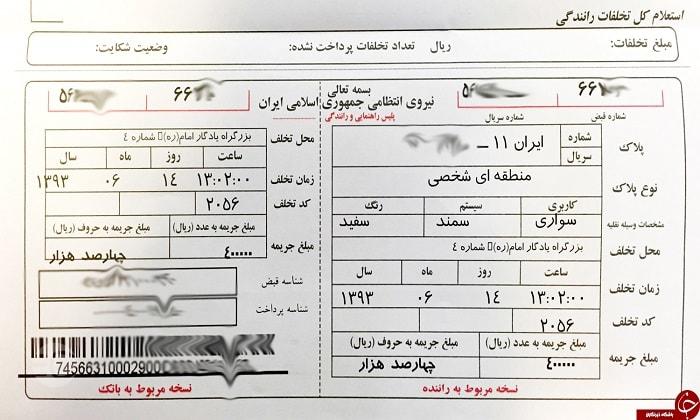 استعلام کل تخلفات رانندگی
مبلغ تخلفات: ریال تعداد تخلفات پرداخت نشده: وضعیت شکایت:
بسمه تعالی
نیروی انتظامی جمهوری اسلامی ایران
پلیس راهنمایی و رانندگی
شماره قبض شماره سریال
پلاک
شماره سریال
ایران ۱۱ ــ
نوع پلاک
منطقه ای شخصی
مشخصات وسیله نقلیه
کاربری سیستم رنگ
سواری سمند سفید
محل تخلف
بزرگراه یادگار امام(ره)⃞ شماره ٤
زمان تخلف
ساعت روز ماه سال
۱۳:۰۲:۰۰ ۱۴ ۰۶ ۱۳۹۳
کد تخلف
۲۰۵۶
مبلغ جریمه
مبلغ جریمه به عدد (ریال) مبلغ جریمه به حروف (ریال)
۴۰۰۰۰۰ چهارصد هزار
نسخه مربوط به راننده
محل تخلف
بزرگراه یادگار امام(ره)⃞ شماره ٤
زمان تخلف
ساعت روز ماه سال
۱۳:۰۲:۰۰ ۱۴ ۰۶ ۱۳۹۳
کد تخلف
۲۰۵۶
مبلغ جریمه
مبلغ جریمه به عدد (ریال) مبلغ جریمه به حروف (ریال)
۴۰۰۰۰۰ چهارصد هزار
شناسه قبض
شناسه پرداخت
74566310002900
نسخه مربوط به بانک